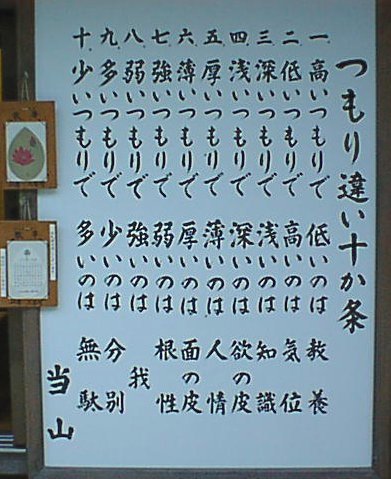 つもり違い十か条
一、高いつもりで 低いのは 教養
二、低いつもりで 高いのは 気位
三、深いつもりで 浅いのは 知識
四、浅いつもりで 深いのは 欲の皮
五、厚いつもりで 薄いのは 人情
六、薄いつもりで 厚いのは 面の皮
七、強いつもりで 弱いのは 根性
八、弱いつもりで 強いのは 我
九、多いつもりで 少いのは 分別
十、少いつもりで 多いのは 無駄
当山